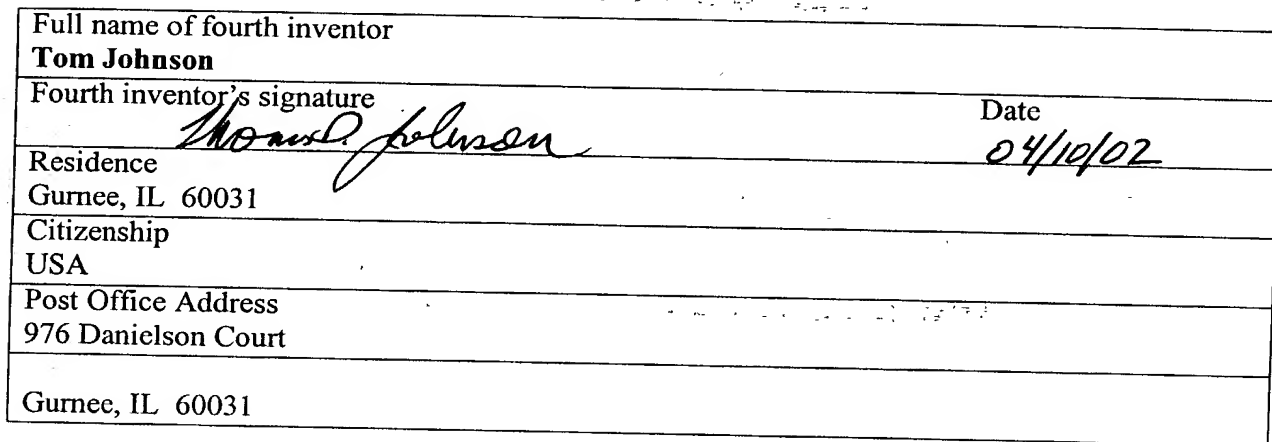 Full name of fourth inventor
Tom Johnson
Fourth inventor's signature
Date
Thomas D. Johnson
04/10/02
Residence
Gurnee, IL 60031
Citizenship
USA
Post Office Address
976 Danielson Court
Gurnee, IL 60031